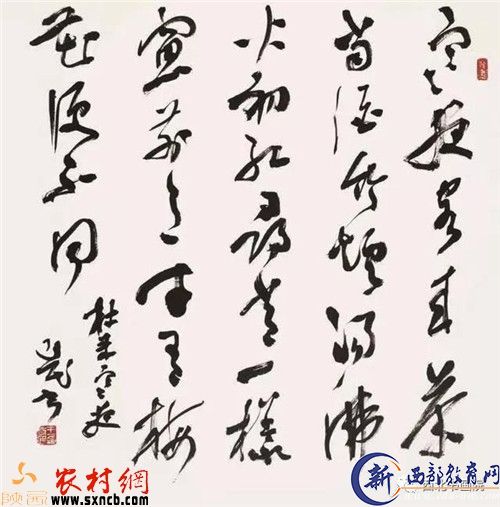 寒夜客來茶
當酒竹爐湯沸
火初紅尋常一樣
窗前月才有梅
花便不同
杜耒寒夜
农村網
www.sxncb.com
新 西部教育网